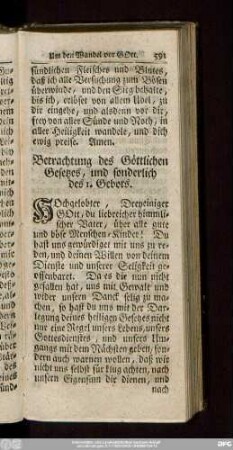 Um den Wandel vor GOtt. 591
sündlichen Fleisches und Blutes,
daß ich alle Versuchung zum Bösen
überwinde, und den Sieg behalte,
bis ich, erlöset von allem Übel, zu
dir eingehe, und alsdenn vor dir,
frey von aller Sünde und Noth, in
aller Heiligkeit wandele, und dich
ewig preise. Amen.
Betrachtung des Göttlichen
Gesetzes, und sonderlich
des 1. Gebots.
HOchgelobter, Dreyeiniger
GOtt, du liebreicher himmli-
scher Vater, über alle gute
und böse Menschen-Kinder! Du
hast uns gewürdiget mit uns zu re-
den, und deinen Willen von deinem
Dienste und unserer Seligkeit ge-
offenbaret. Da es dir nun nicht
gefallen hat, uns mit Gewalt und
wider unsern Danck selig zu ma-
chen, so hast du uns mit der Dar-
legung deines heiligen Gesetzes nicht
nur eine Regel unsers Lebens, unsers
Gottesdienstes, und unsers Um-
gangs mit dem Nächsten geben, son-
dern auch warnen wollen, daß wir
nicht uns selbst für klug achten, nach
unserm Eigensinn dir dienen, und
nach